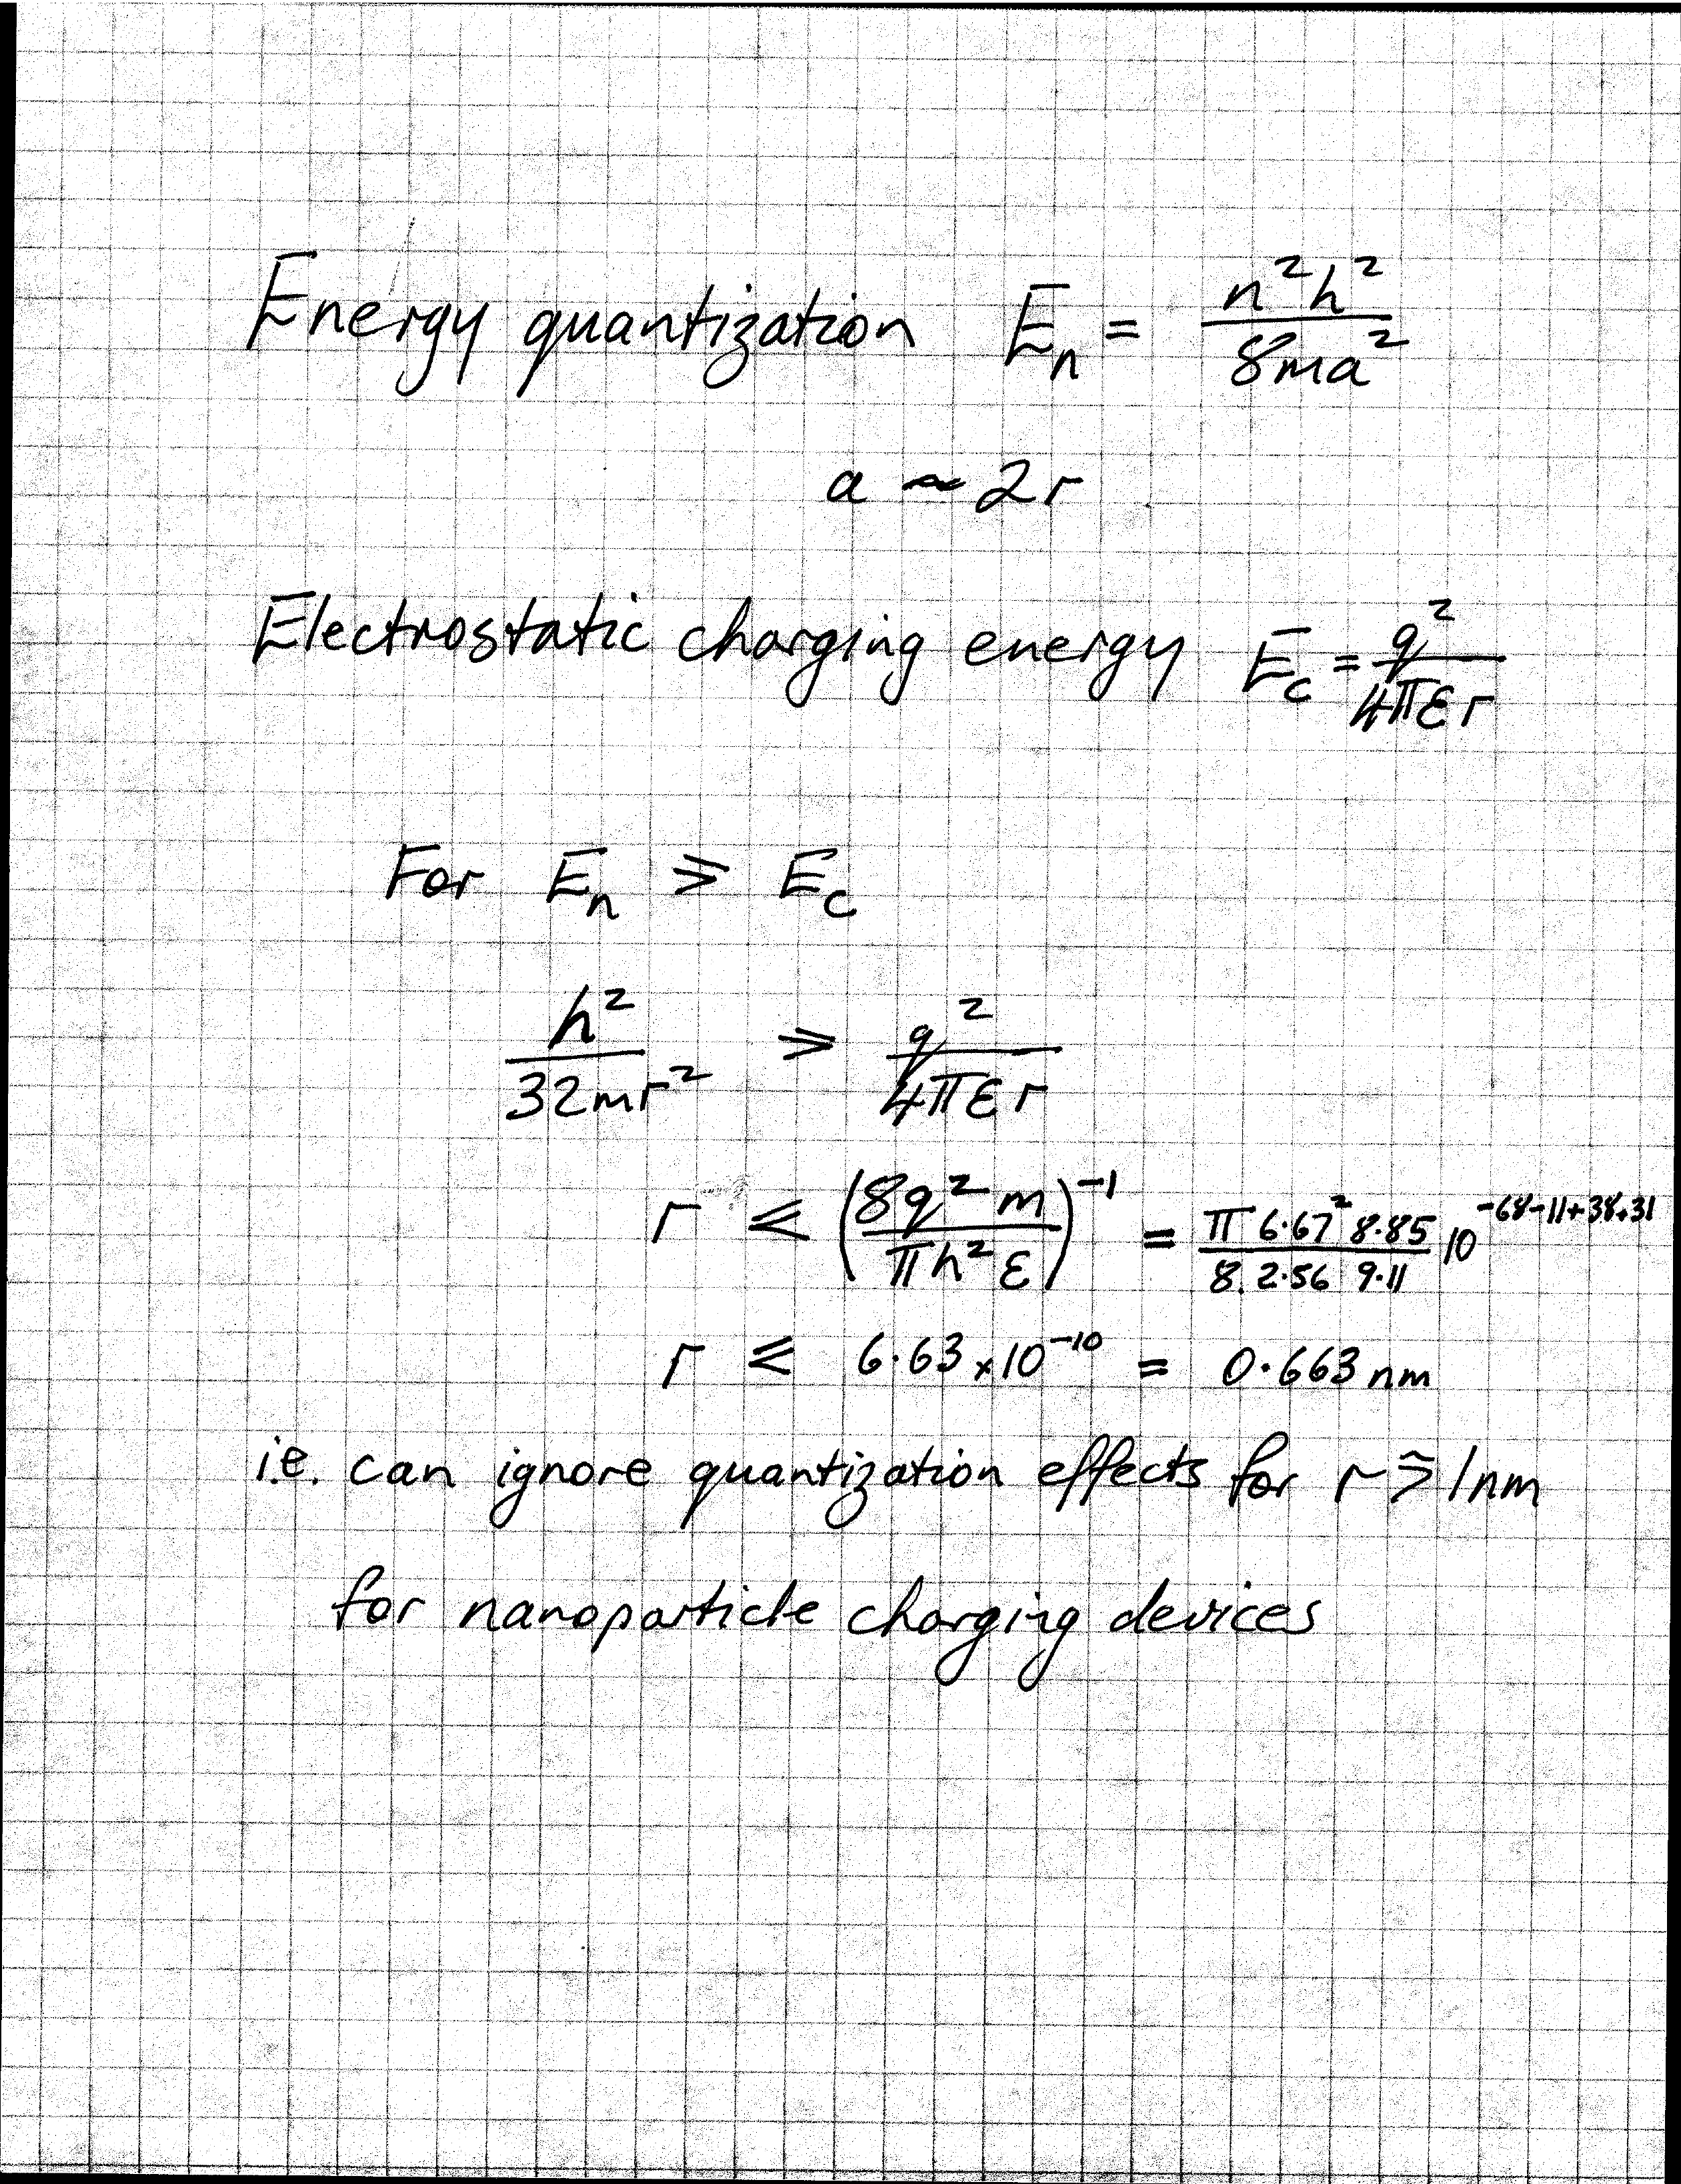 Energy quantization Eₙ = n²h² / 8ma²
a ~ 2r
Electrostatic charging energy E_c = q² / 4πεr
For Eₙ ⩾ E_c
h² / 32mr² ⩾ q² / 4πεr
r ⩽ (8q²m / πh²ε)⁻¹ = π 6·67² 8·85 / 8. 2·56 9·11 10^(-68-11+38+31)
r ⩽ 6·63 x 10⁻¹⁰ = 0·663 nm
i.e. can ignore quantization effects for r ⪆ 1nm
for nanoparticle charging devices